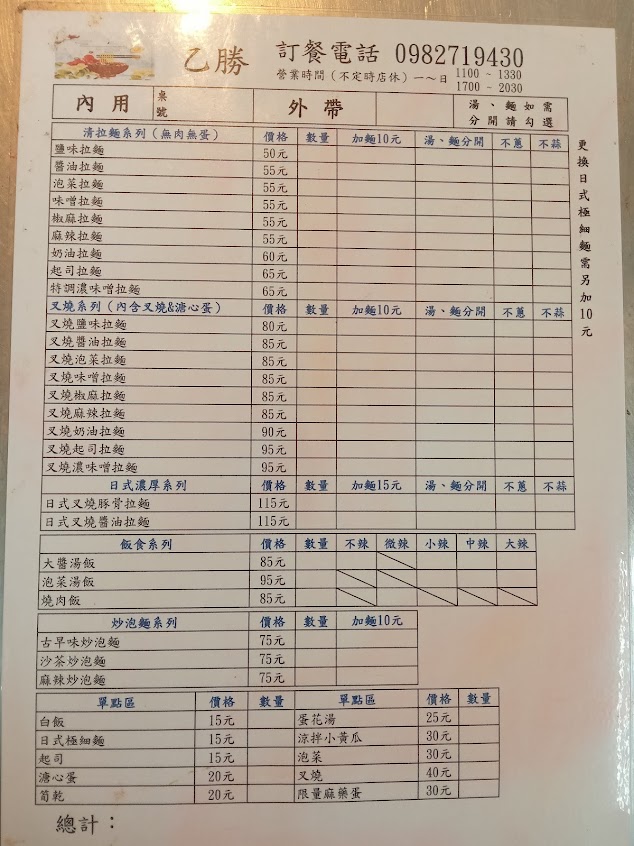 乙勝 訂餐電話 0982719430
營業時間（不定時店休）一～日 1100 ~ 1330
1700 ~ 2030
內用 桌號 外帶 湯、麵如需分開請勾選
清拉麵系列（無肉無蛋） 價格 數量 加麵10元 湯、麵分開 不蔥 不蒜
鹽味拉麵 50元
醬油拉麵 55元
泡菜拉麵 55元
味噌拉麵 55元
椒麻拉麵 55元
麻辣拉麵 55元
奶油拉麵 60元
起司拉麵 65元
特調濃味噌拉麵 65元
叉燒系列（內含叉燒&溏心蛋） 價格 數量 加麵10元 湯、麵分開 不蔥 不蒜
叉燒鹽味拉麵 80元
叉燒醬油拉麵 85元
叉燒泡菜拉麵 85元
叉燒味噌拉麵 85元
叉燒椒麻拉麵 85元
叉燒麻辣拉麵 85元
叉燒奶油拉麵 90元
叉燒起司拉麵 95元
叉燒濃味噌拉麵 95元
日式濃厚系列 價格 數量 加麵15元 湯、麵分開 不蔥 不蒜
日式叉燒豚骨拉麵 115元
日式叉燒醬油拉麵 115元
更換日式極細麵需另加10元
飯食系列 價格 數量 不辣 微辣 小辣 中辣 大辣
大醬湯飯 85元
泡菜湯飯 95元
燒肉飯 85元
炒泡麵系列 價格 數量 加麵10元
古早味炒泡麵 75元
沙茶炒泡麵 75元
麻辣炒泡麵 75元
單點區 價格 數量 單點區 價格 數量
白飯 15元 蛋花湯 25元
日式極細麵 15元 涼拌小黃瓜 30元
起司 15元 泡菜 30元
溏心蛋 20元 叉燒 40元
筍乾 20元 限量麻藥蛋 30元
總計：